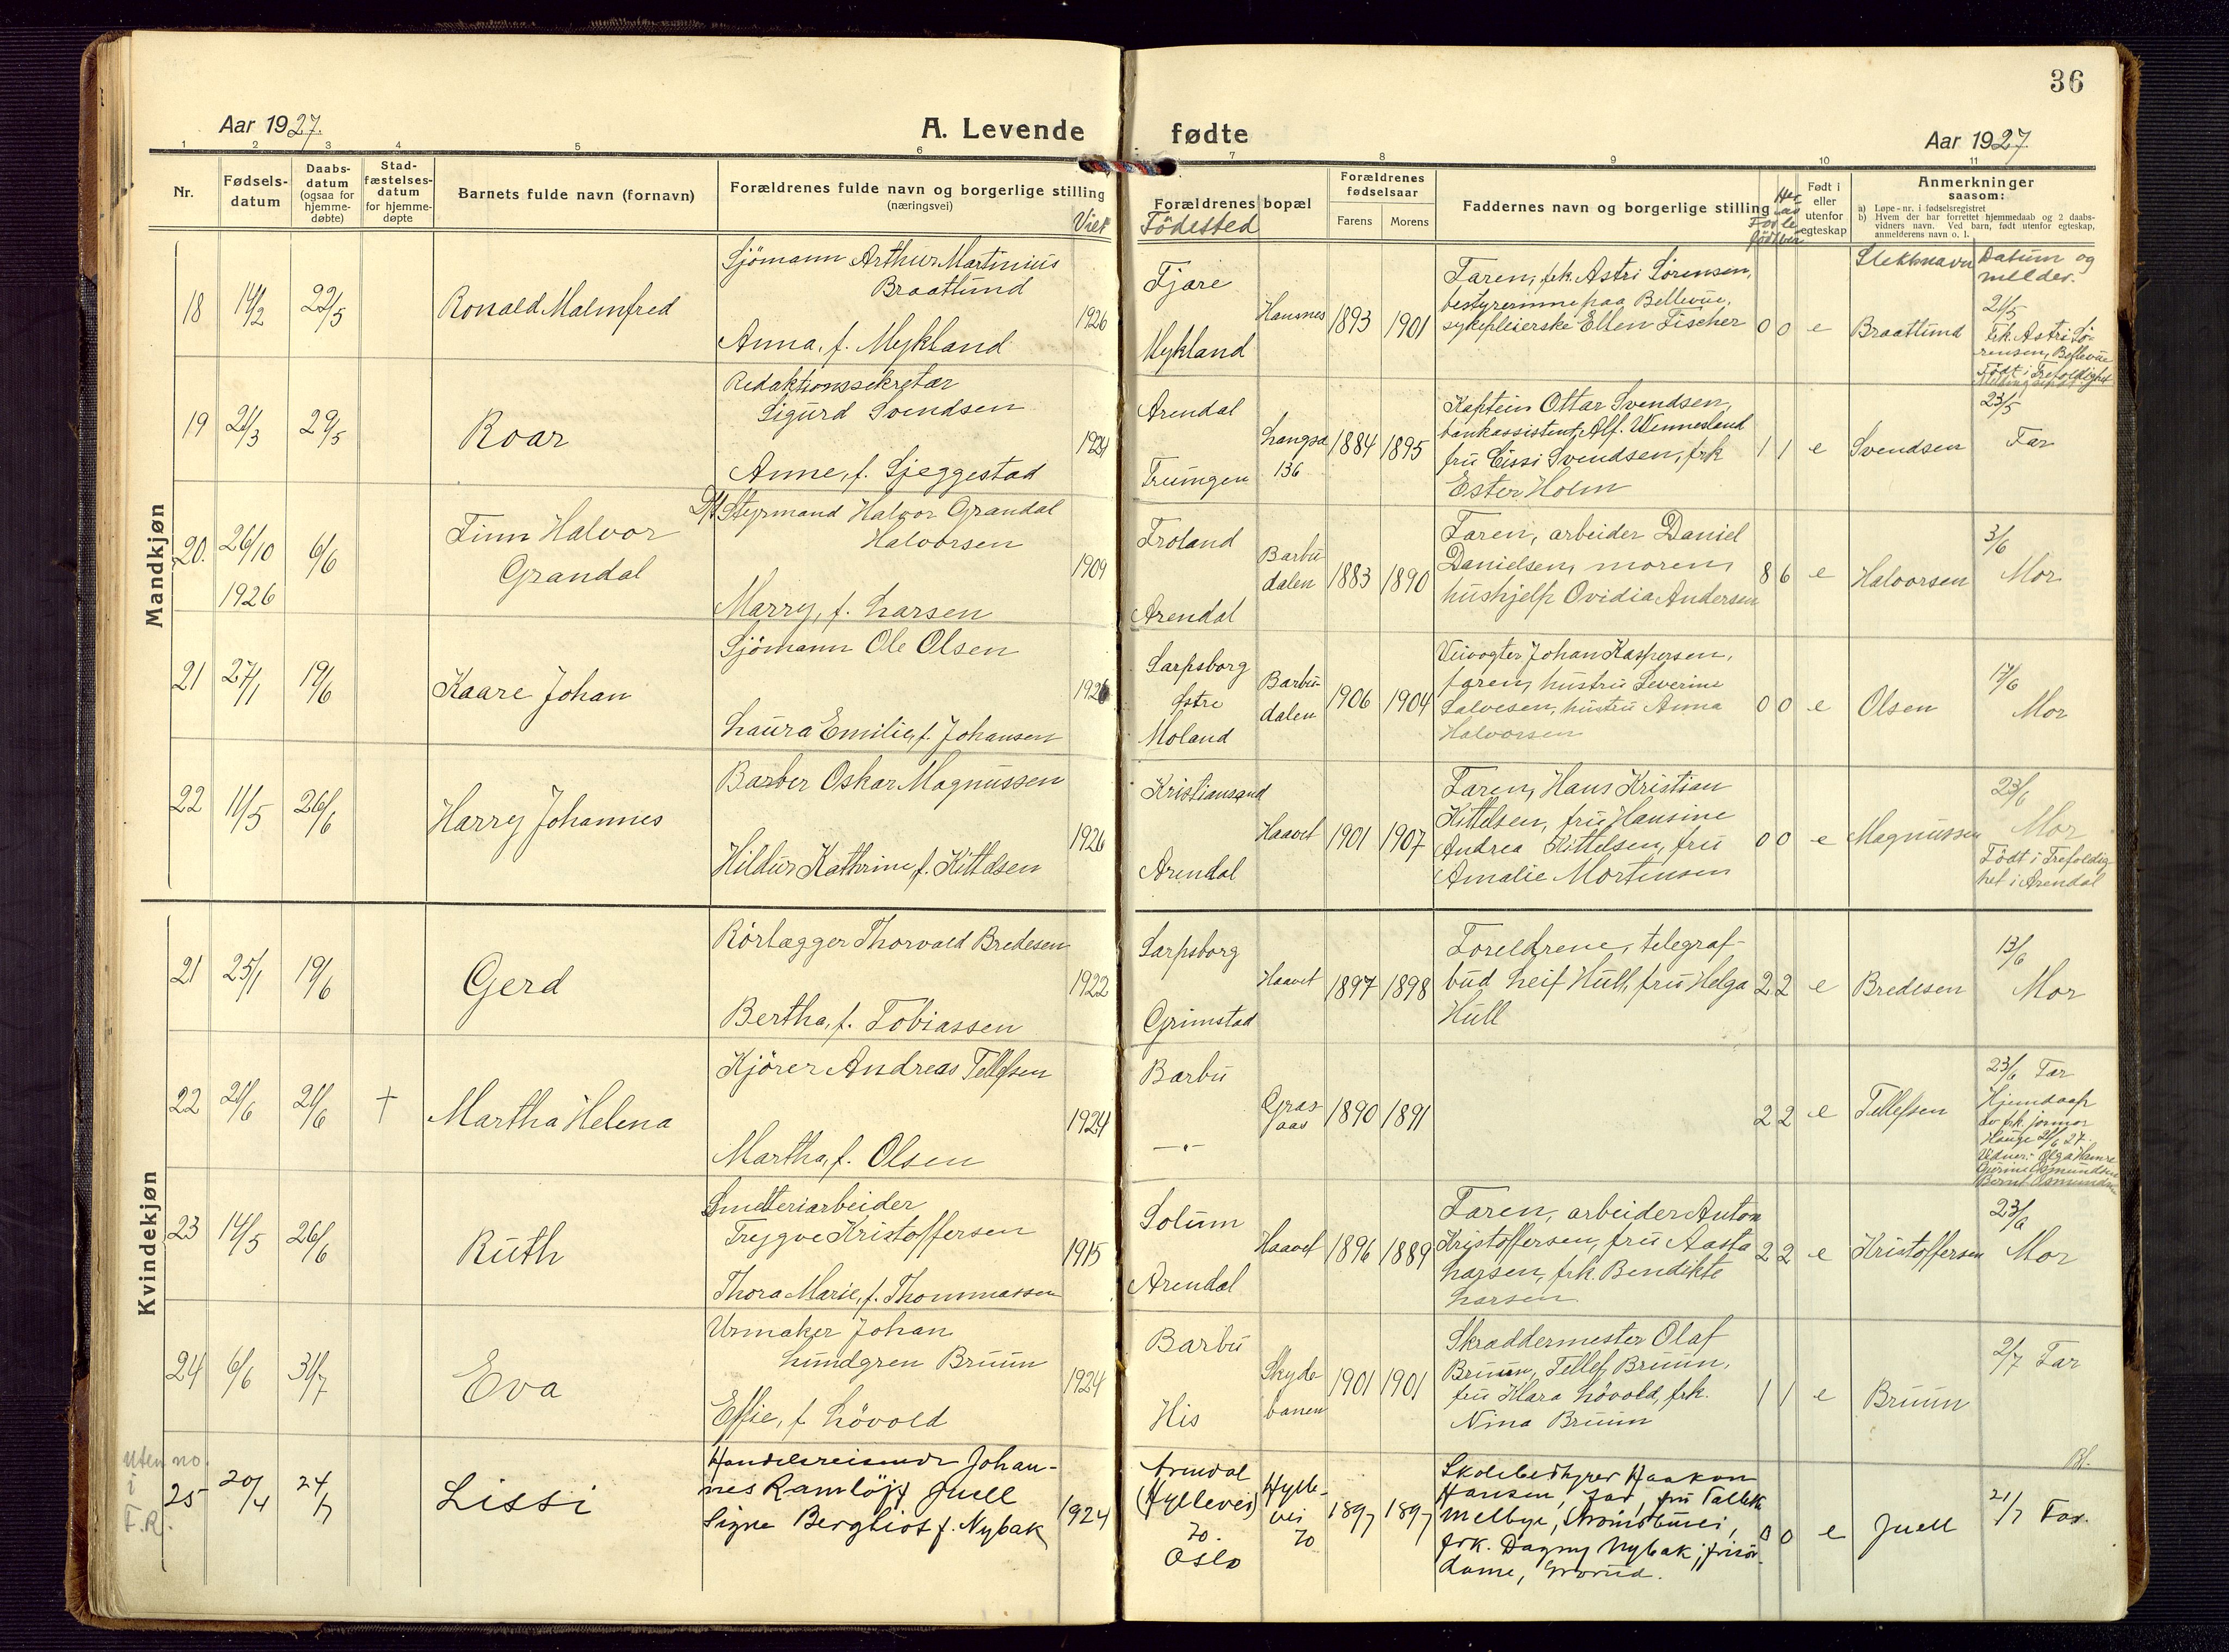 36
Aar 1927.
A. Levende
fødte
Aar 1927
1 2 3 4 5 6 7 8 9 10 11
Nr.
Fødsels-
datum
Daabs-
datum
(ogsaa for
hjemme-
døbte)
Stad-
fæstelses-
datum
for hjemme-
døpte
Barnets fulde navn (fornavn)
Forældrenes fulde navn og borgerlige stilling
(næringsvei)
Viet
Forældrenes bopæl
Födested
Forældrenes
fødselsaar
Farens
Morens
Faddernes navn og borgerlige stilling
Født i
eller
utenfor
egteskap
Anmerkninger
saasom:
a) Løpe-nr. i fødselsregistret
b) Hvem der har forrettet hjemmedaab og 2 daabs-
vidners navn. Ved barn, født utenfor egteskap,
anmelderens navn o. l.
Slektsnavn
Datum og
melder.
Mandkjøn
18
14/2
22/5
Ronald Malmfred
Sjömann Arthur Martinius
Braatlund
Anna, f. Mykland
1926
Fjære
Mykland
Hausnes
1893
1901
Faren, frk. Astri Sørensen,
bestyrerinne paa Bellevue,
sykepleierske Ellen Fischer
0 0 e
Braatlund
21/5
Frk. Astri Sö-
rensen, Bellevue
Födt i Trefoldighet
19
21/3
29/5
Roar
Redaktionssekretær
Sigurd Svendsen
Anne, f. Sjeggestad
1924
Arendal
Langsæ
136
1884
1895
Kaptein Ottar Svendsen,
bankassistent Alf. Wennesland
fru Cissi Svendsen, frk
Ester Holm
1 1 e
Svendsen
23/5
Far
20.
26/10
1926
6/6
Finn Halvor
Grandal
Styrmand Halvor Grandal
Halvorsen
Marry, f. Larsen
1909
Froland
Arendal
Barbu
dalen
1883
1890
Faren, arbeider Daniel
Danielsen, moren,
hushjelp Ovidia Andersen
8 6 e
Halvorsen
3/6
Mor
21
27/1
19/6
Kaare Johan
Sjömann Ole Olsen
Laura Emilie, f. Johansen
1926
Sarpsborg
Østre
Moland
Barbu-
dalen
1906
1904
Veivogter Johan Kaspersen,
faren, hustru Severine
Salvesen, hustru Anna
Halvorsen
0 0 e
Olsen
17/6
Mor
22
11/5
26/6
Harry Johannes
Barber Oskar Magnussen
Hildur Kathrine, f. Kittelsen
1926
Kristiansand
Arendal
Haavet
1901
1907
Faren, Hans Kristian
Kittelsen, fru Hansine
Andrea Kittelsen, fru
Amalie Mortensen
0 0 e
Magnussen
23/6
Mor
Födt i Trefoldig
het i Arendal
Kvindekjøn
21
25/1
19/6
Gerd
Rörlægger Thorvald Bredesen
Bertha, f. Tobiassen
1922
Sarpsborg
Grimstad
Haavet
1897
1898
Foreldrene, telegraf-
bud Leif Hull, fru Helga
Hull
2 2 e
Bredesen
13/6
Mor
22
21/6
21/6
†
Martha Helena
Kjörer Andreas Tellefsen
Martha, f. Olsen
1924
Barbu
—"—
Graas
aas
1890
1891
2 2 e
Tellefsen
23/6 Far
Hjemdaap
av frk. jormor
Hauge 21/6 27.
Vidner: Olga Hamre
Gjerine Osmundsen
Bernt Osmundsen
23
14/5
26/6
Ruth
Smelteriarbeider
Trygve Kristoffersen
Thora Marie, f. Thommassen
1915
Solum
Arendal
Haavet
1896
1889
Faren, arbeider Anton
Kristoffersen, fru Aasta
Larsen, frk. Bendikte
Larsen
2 2 e
Kristoffersen
23/6
Mor
24
6/6
31/7
Eva
Urmaker Johan
Lundgren Bruun
Effie, f. Lövold
1924
Barbu
His
Skyde
banen
1901
1901
Skræddermester Olaf
Bruun, Tellef Bruun,
fru Klara Lövold, frk.
Nina Bruun
1 1 e
Bruun
2/7 Far
uten no.
i
F.R.
25
20/4
24/7
Lissi
Handelsreisende Johan-
nes Ramlöjt Juell
Signe Bergliot f. Nybak
1924
Arendal
(Hyllevei)
70.
Oslo
Hylle-
vei
70
1897
1897
Skolebestyrer Haakon
Hansen, far, fru Tallek
Melbye, Strömsbuvei,
frk. Dagny Nybak, frisör-
dame, Grorud.
0 0 e
Juell
21/7 Far.